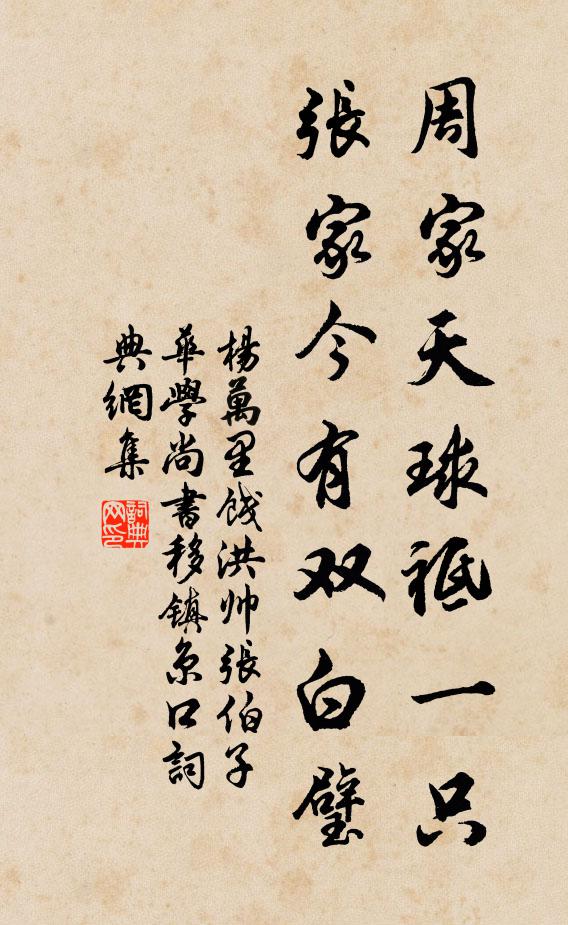 周家天球祗一只
張家今有双白璧
楊萬里餞洪帅張伯子
華學尚書移鎮京口詞
典網集
詞典网印